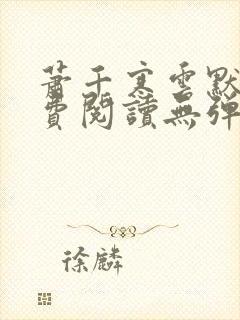 萧千寒雪默
費閱讀無彈
徐麟